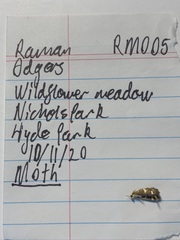 Raman RM005
Odgers
Wildflower meadow
Nichols Park
Hyde Park
10/11/20
Moth